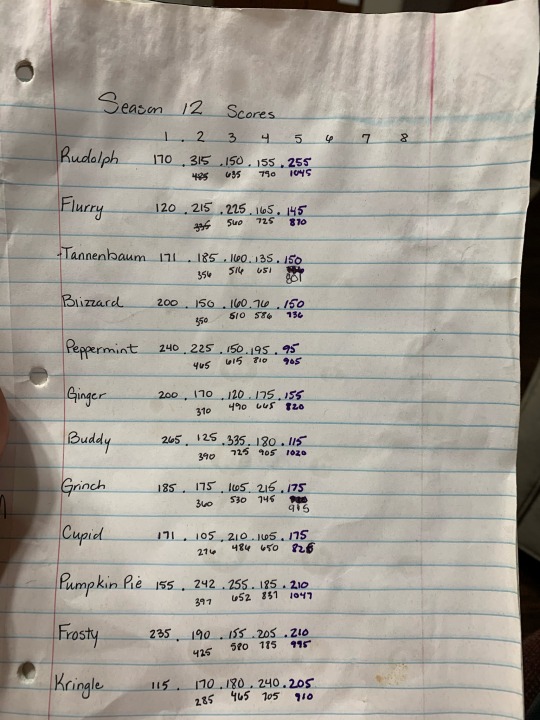 Season 12 Scores
1 . 2 3 4 5 6 7 8
Rudolph 170 . 315 . 150 . 155 . 255
485 635 790 1045
Flurry 120 . 215 . 225 . 165 . 145
335 560 725 870
Tannenbaum 171 . 185 . 160 . 135 . 150
356 516 651 801
Blizzard 200 . 150 . 160 . 76 . 150
350 510 586 736
Peppermint 240 . 225 . 150 . 195 . 95
465 615 810 905
Ginger 200 . 170 . 120 . 175 . 155
370 490 665 820
Buddy 265 . 125 . 335 . 180 . 115
390 725 905 1020
Grinch 185 . 175 . 165 . 215 . 175
360 530 745 915
Cupid 171 . 105 . 210 . 165 . 175
276 486 650 826
Pumpkin Pie 155 . 242 . 255 . 185 . 210
397 652 837 1047
Frosty 235 . 190 . 155 . 205 . 210
425 580 785 995
Kringle 115 . 170 . 180 . 240 . 205
285 465 705 910